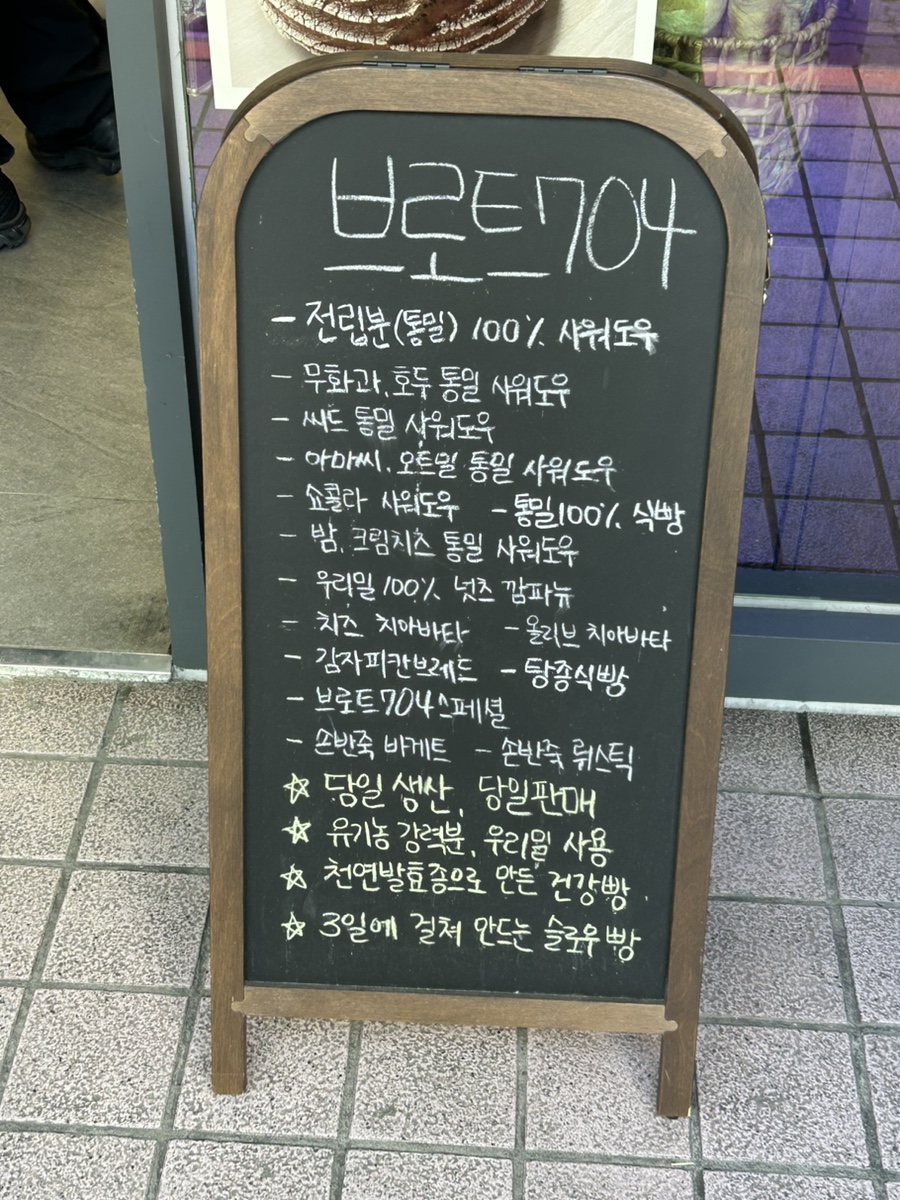 브로트704
- 전립분(통밀) 100% 사워도우
- 무화과.호두 통밀 사워도우
- 씨드 통밀 사워도우
- 아마씨. 오트밀 통밀 사워도우
- 쇼콜라 사워도우 - 통밀100% 식빵
- 밤. 크림치즈 통밀 사워도우
- 우리밀 100% 넛츠 깜파뉴
- 치즈 치아바타 - 올리브 치아바타
- 감자피칸브레드 - 탕종식빵
- 브로트704스페셜
- 손반죽 바게트 - 손반죽 뤼스틱
☆ 당일 생산, 당일판매
☆ 유기농 강력분, 우리밀 사용
☆ 천연발효종으로 만든 건강빵.
☆ 3일에 걸쳐 만드는 슬로우빵